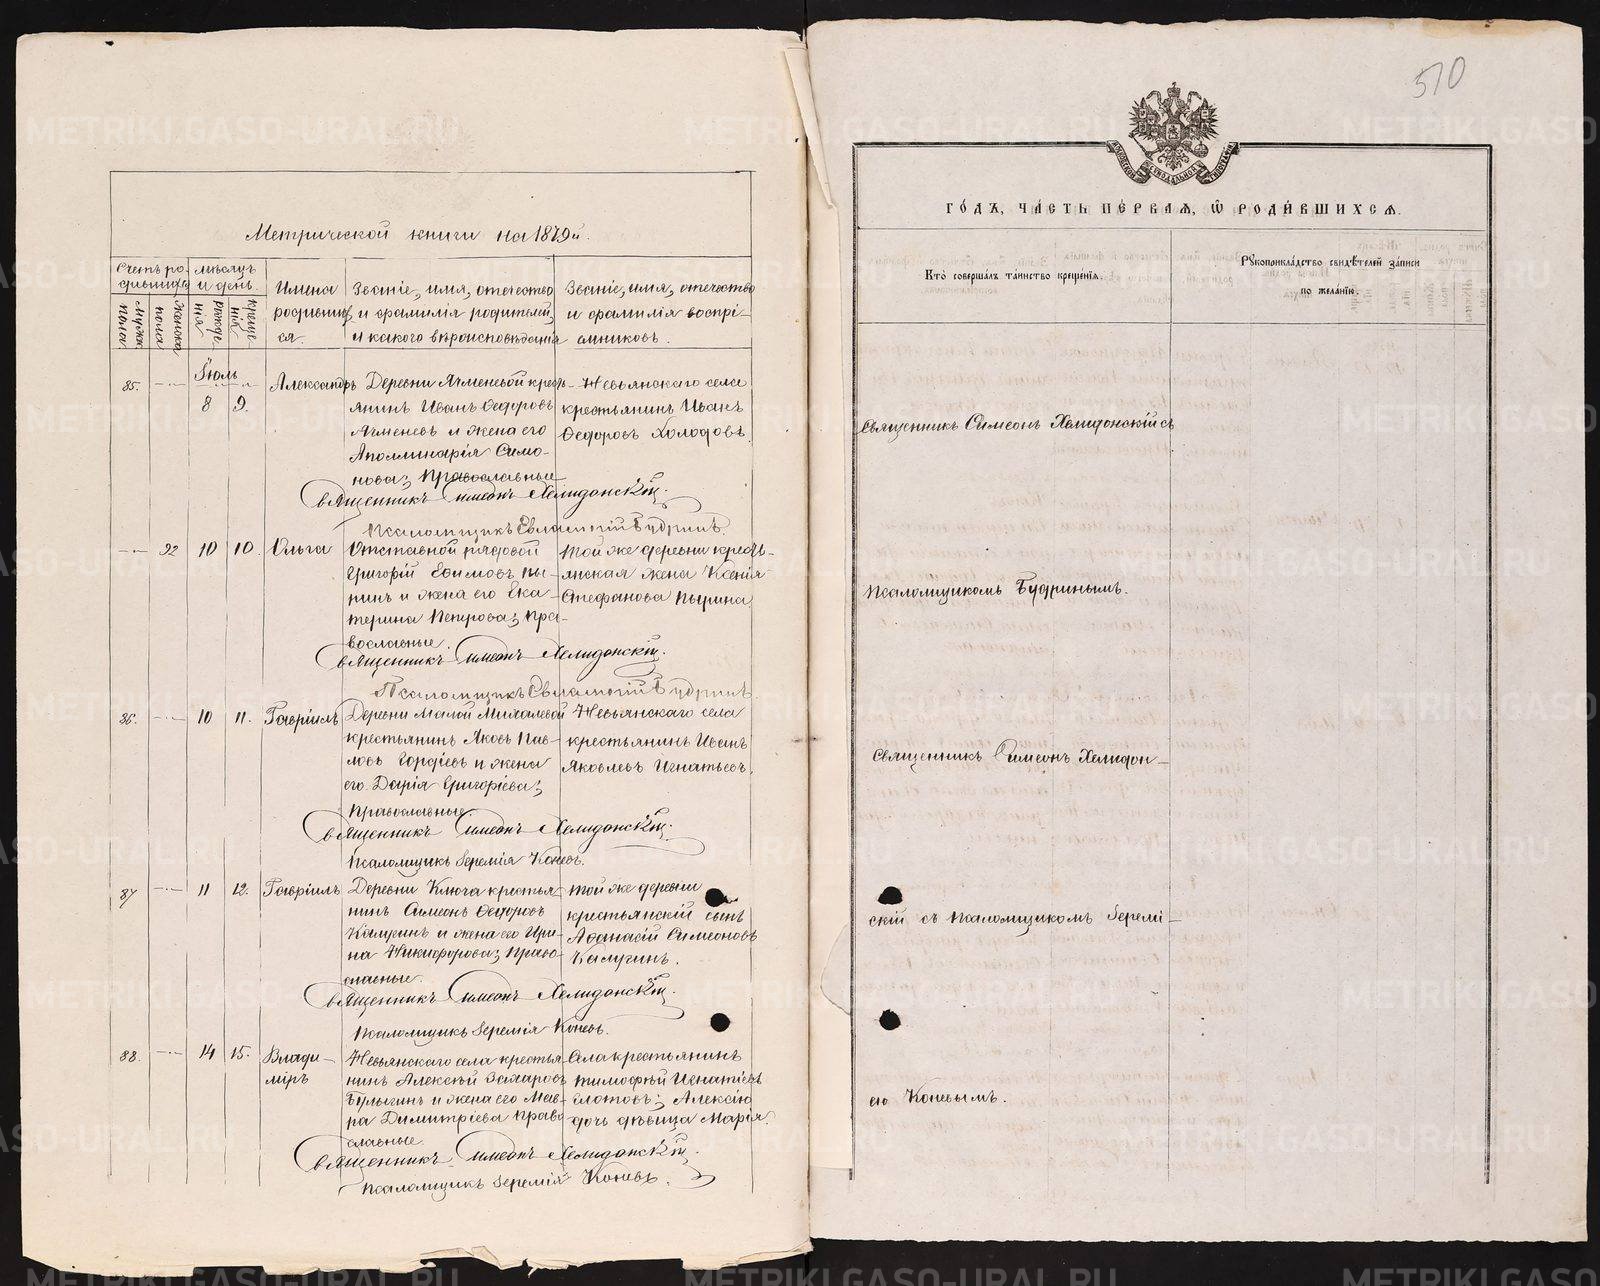 510
Метрической книги на 1879й.
Счетъ ро-
дившихъ
мѣсяцъ
и день.
Мужск
пола
Женска
пола
рожде-
нія
креще-
нія
Имена
родивших
ся.
Званіе, имя, отчество
и фамилія родителей,
и какого вѣроисповѣданія
Званіе, имя, отчество
и фамилія воспрі-
емниковъ.
Іюль
85.
8
9.
Александръ
Деревни Ячменевой кресть-
янинъ Иванъ Ѳедоровъ
Ячменевъ и жена его
Аполлинарія Симо-
нова; Православные
Невьянскаго села
крестьянинъ Иванъ
Ѳедоровъ Холодовъ.
Священникъ Симеонъ Хелидонскій.
Псаломщикъ Евлампій Будринъ.
92
10
10.
Ольга
Отставной рядовой
Григорій Ефимовъ Пы-
ринъ и жена его Ека-
терина Петрова; Пра-
вославные.
Той же деревни кресть-
янская жена Ксенія
Стефанова Пырина
Священникъ Симеонъ Хелидонскій.
Псаломщикъ Евлампій Будринъ.
86.
10
11.
Гавріилъ
Деревни Малой Михалевой
крестьянинъ Яковъ Пав-
ловъ Гордѣевъ и жена
его Дарія Григоріева;
Православные
Невьянскаго села
крестьянинъ Иванъ
Яковлевъ Игнатьевъ.
Священникъ Симеонъ Хелидонскій.
Псаломщикъ Іеремія Коневъ.
87
11
12.
Гавріилъ
Деревни Ключа крестья-
нинъ Симеонъ Ѳедоровъ
Калугинъ и жена его Ири-
на Никифорова; Право-
славные.
Той же деревни
крестьянскій сынъ
Аѳанасій Симеоновъ
Калугинъ.
Священникъ Симеонъ Хелидонскій.
Псаломщикъ Іеремія Коневъ.
88.
14
15.
Влади-
міръ
Невьянскаго села крестья-
нинъ Алексѣй Захаровъ
Булыгинъ и жена его Мав-
ра Димитріева Право
славные.
Села крестьянинъ
Тимофѣй Игнатіевъ
дочь дѣвица Марія.
Священникъ Симеонъ Хелидонскій.
Псаломщикъ Іеремія Коневъ.
ГО́ДЪ, ЧА́СТЬ ПЕ́РВАѦ, Ѽ РОДИ́ВШИХСѦ.
Кто̀ соверша́лъ та́инство креще́нїѧ.
Рꙋкоприкла́дство свидѣ́телей за́писи
по жела́нїю.
Священникъ Симеонъ Хелидонскій съ
Псаломщикомъ Будринымъ.
Священникъ Симеонъ Хелидон-
скій съ Псаломщикомъ Іеремі-
ею Коневымъ.
METRIKI.GASO-URAL.RU